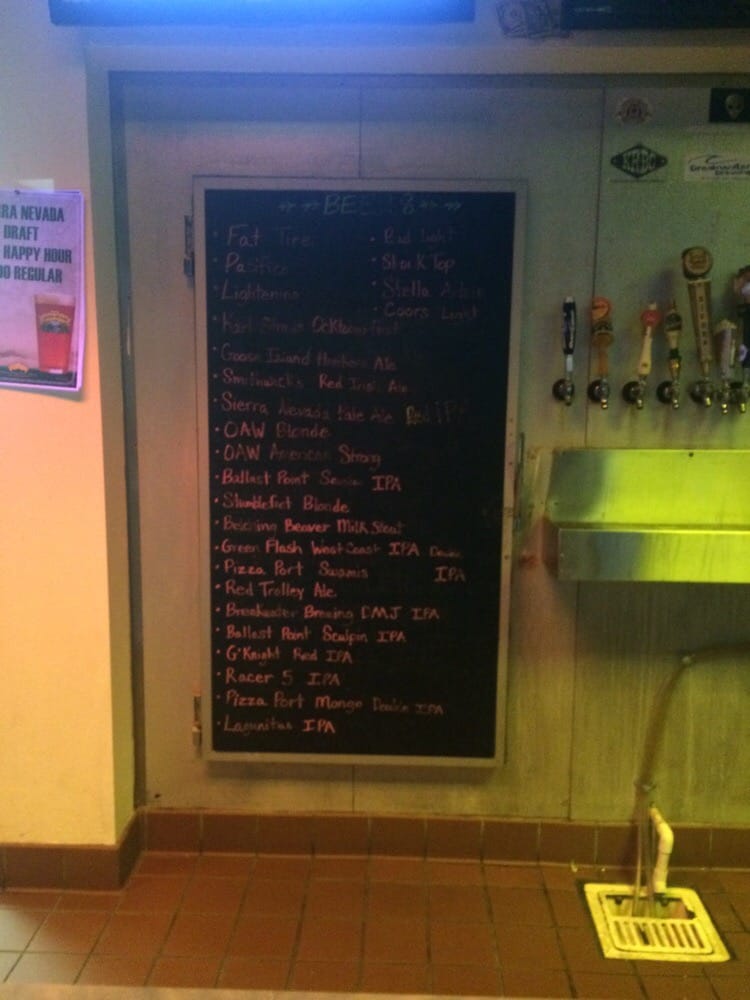 RA NEVADA
DRAFT
HAPPY HOUR
00 REGULAR
KHBC
Breakwater
BEERS
• Fat Tire
• Bud Light
• Pacifico
• Shock Top
• Lightening
• Stella Artois
• Coors Light
• Karl Strauss Ocktoberfest
• Goose Island Honkers Ale
• Smithwicks Red Irish Ale
• Sierra Nevada Pale Ale Red IPA
• OAW Blonde
• OAW American Strong
• Ballast Point IPA
• Stumblefoot Blonde
• Belching Beaver Milk Stout
• Green Flash West Coast IPA Double
• Pizza Port Swamis IPA
• Red Trolley Ale
• Breakwater Brewing DMJ IPA
• Ballast Point Sculpin IPA
• G'Knight Red IPA
• Racer 5 IPA
• Pizza Port Mongo Double IPA
• Lagunitas IPA